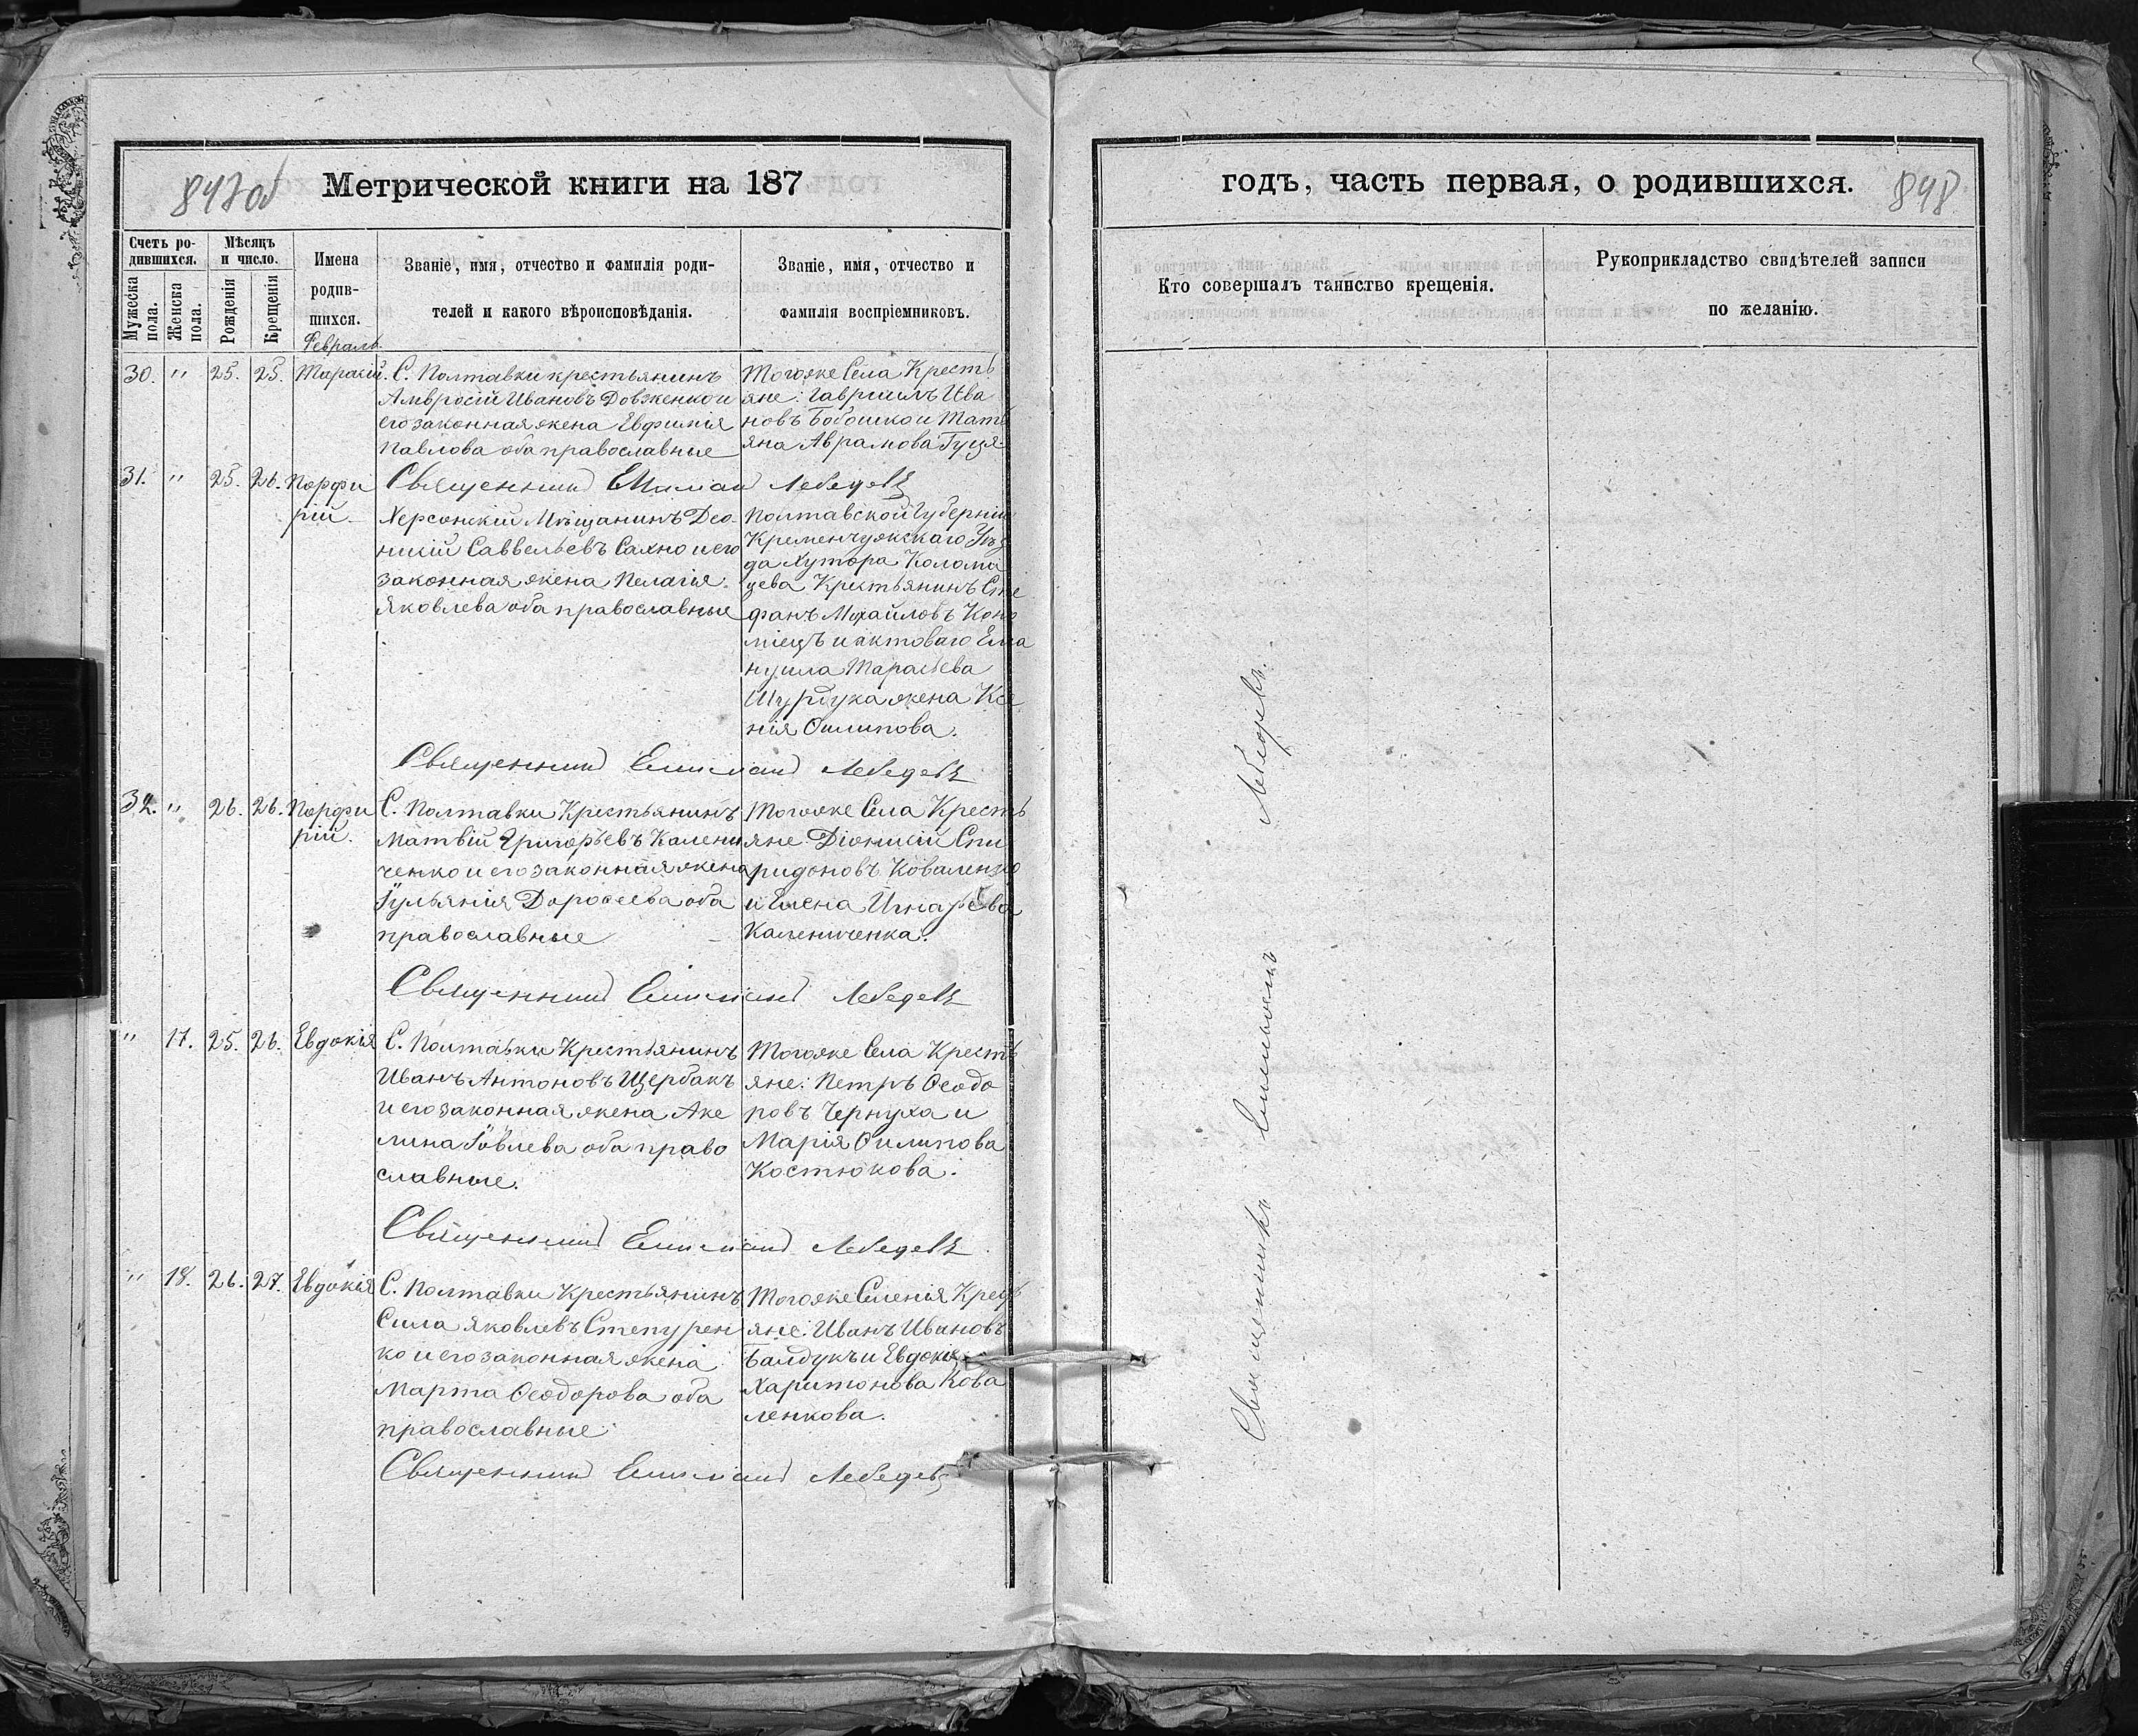 847об
Метрической книги на 187
Счетъ ро-
дившихся.
Мѣсяцъ
и число.
Мужеска
пола.
Женска
пола.
Рожденія
Крещенія
Имена
родив-
шихся.
Февраль.
Званіе, имя, отчество и фамилія роди-
телей и какого вѣроисповѣданія.
Званіе, имя, отчество и
фамилія воспріемниковъ.
30. " 25. 25. Тарасій.
С. Полтавки крестьянинъ
Амвросій Ивановъ Довженко и
его законная жена Евфимія
Павлова оба православные
Тогоже Села Кресть
яне: Гавріилъ Ива
новъ Бобошко и Тать
яна Аврамова Гуця
Священникъ Лебедевъ
31. " 25. 26. Порфи
рій
Херсонскій Мѣщанинъ Део-
нисій Саввельевъ Сахно и его
законная жена Пелагія
Яковлева оба православные
Полтавской Губерніи
Кременчужскаго Уѣз
да Хутора Колома
цева Крестьянинъ Сте
фанъ Михайловъ Коло
міецъ и актоваго Ема
нуила Тарасьева
жена Ксе
нія Филипова.
Священникъ Лебедевъ
32. " 26. 26. Порфи
рій.
С. Полтавки Крестьянинъ
Матвій Григорьевъ Калени
ченко и его законная жена
Іульянія Дороѳеева оба
православные
Тогоже Села Кресть
яне Діонисій Спи
ридоновъ Коваленко
и Елена
Калениченка.
Священникъ Лебедевъ
" 17. 25. 26. Евдокія
С. Полтавки Крестьянинъ
Иванъ Антоновъ Щербакъ
и его законная жена Аке
лина Іовлева оба право
славные.
Тогоже Села Кресть
яне: Петръ Ѳеодо
ровъ Чернуха и
Марія Филипова
Костюкова.
Священникъ Лебедевъ
" 18. 26. 27. Евдокія
С. Полтавки Крестьянинъ
Сила Яковлевъ Степурен
ко и его законная жена
Марта Ѳеодорова оба
православные
Тогоже Селенія Крес
яне: Иванъ Ивановъ
Балдукъ и Евдокія
Харитонова Кова
ленкова.
Священникъ Лебедевъ
годъ, часть первая, о родившихся.
848
Кто совершалъ таинство крещенія.
Рукоприкладство свидѣтелей записи
по желанію.
Священникъ Лебедевъ